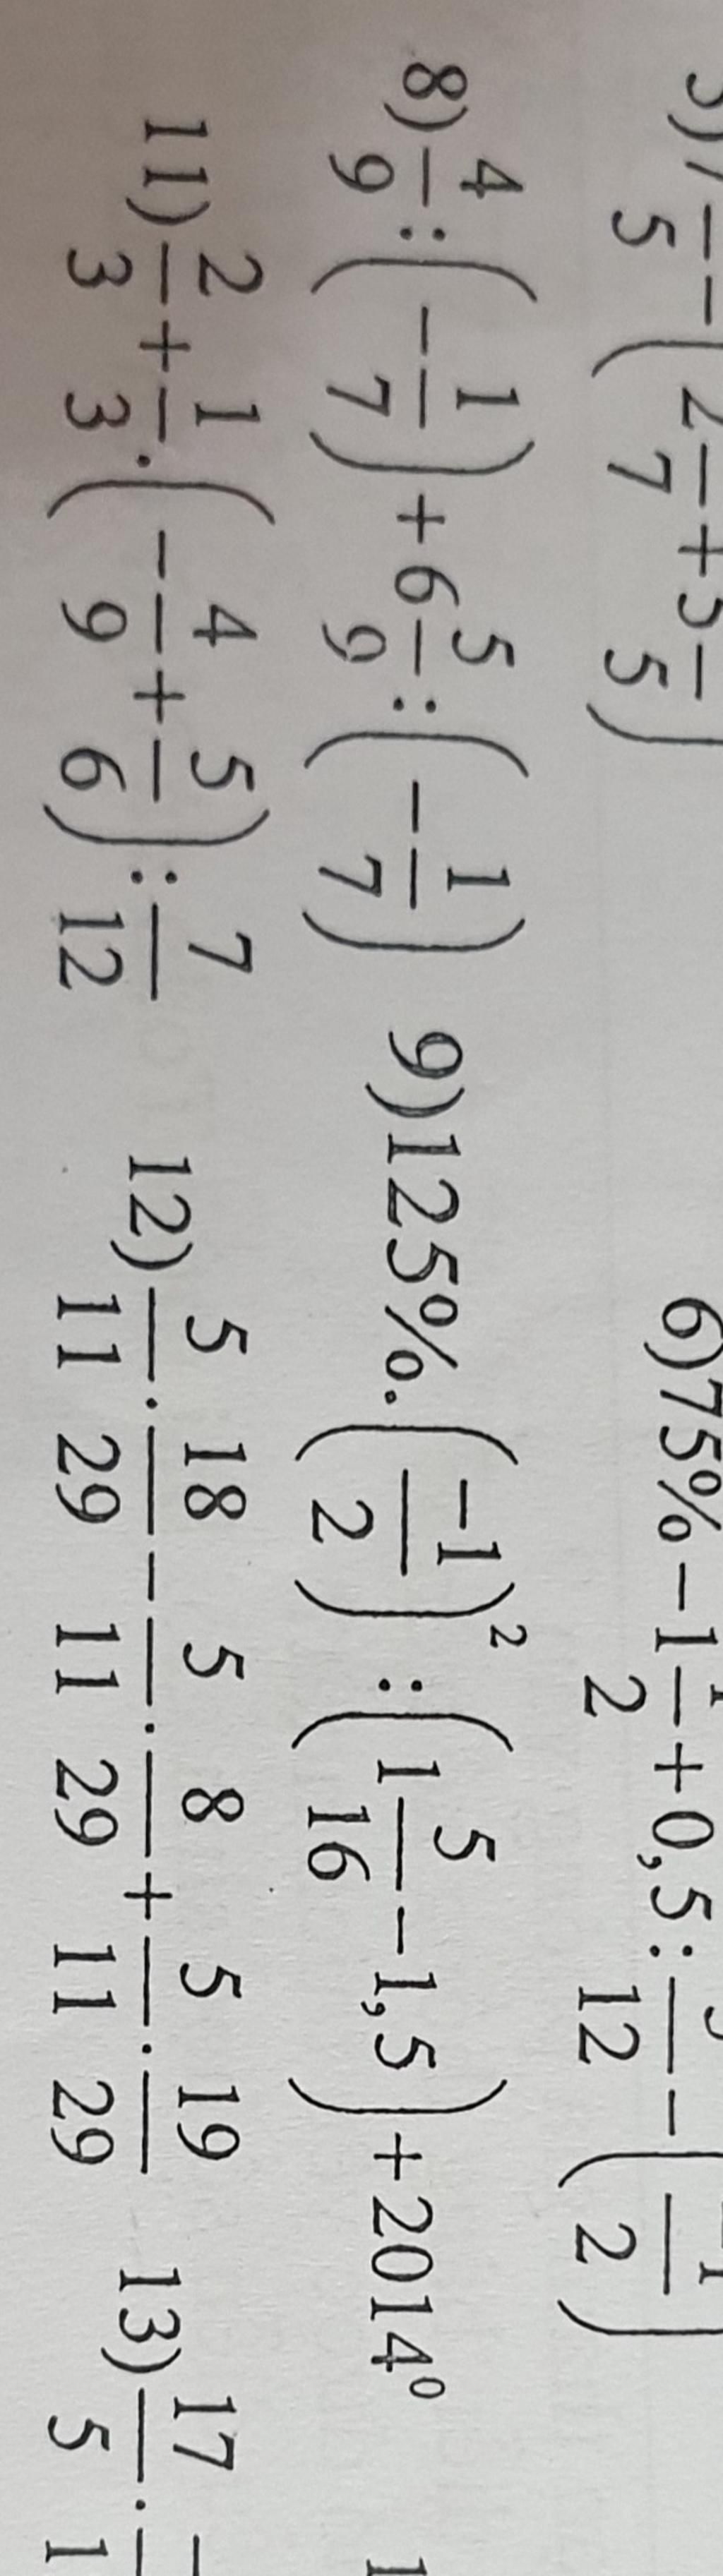 6)75%-1 1/2+0,5:
8) 4/9:(-1/7)+6 5/9:(-1/7) 9)125%.(-1/2)²:(1 5/16-1,5)+2014⁰
11) 2/3+1/3.(-4/9+5/6):7/12 12) 5/11.18/29-5/11.8/29+5/11.19/29 13) 17/5.